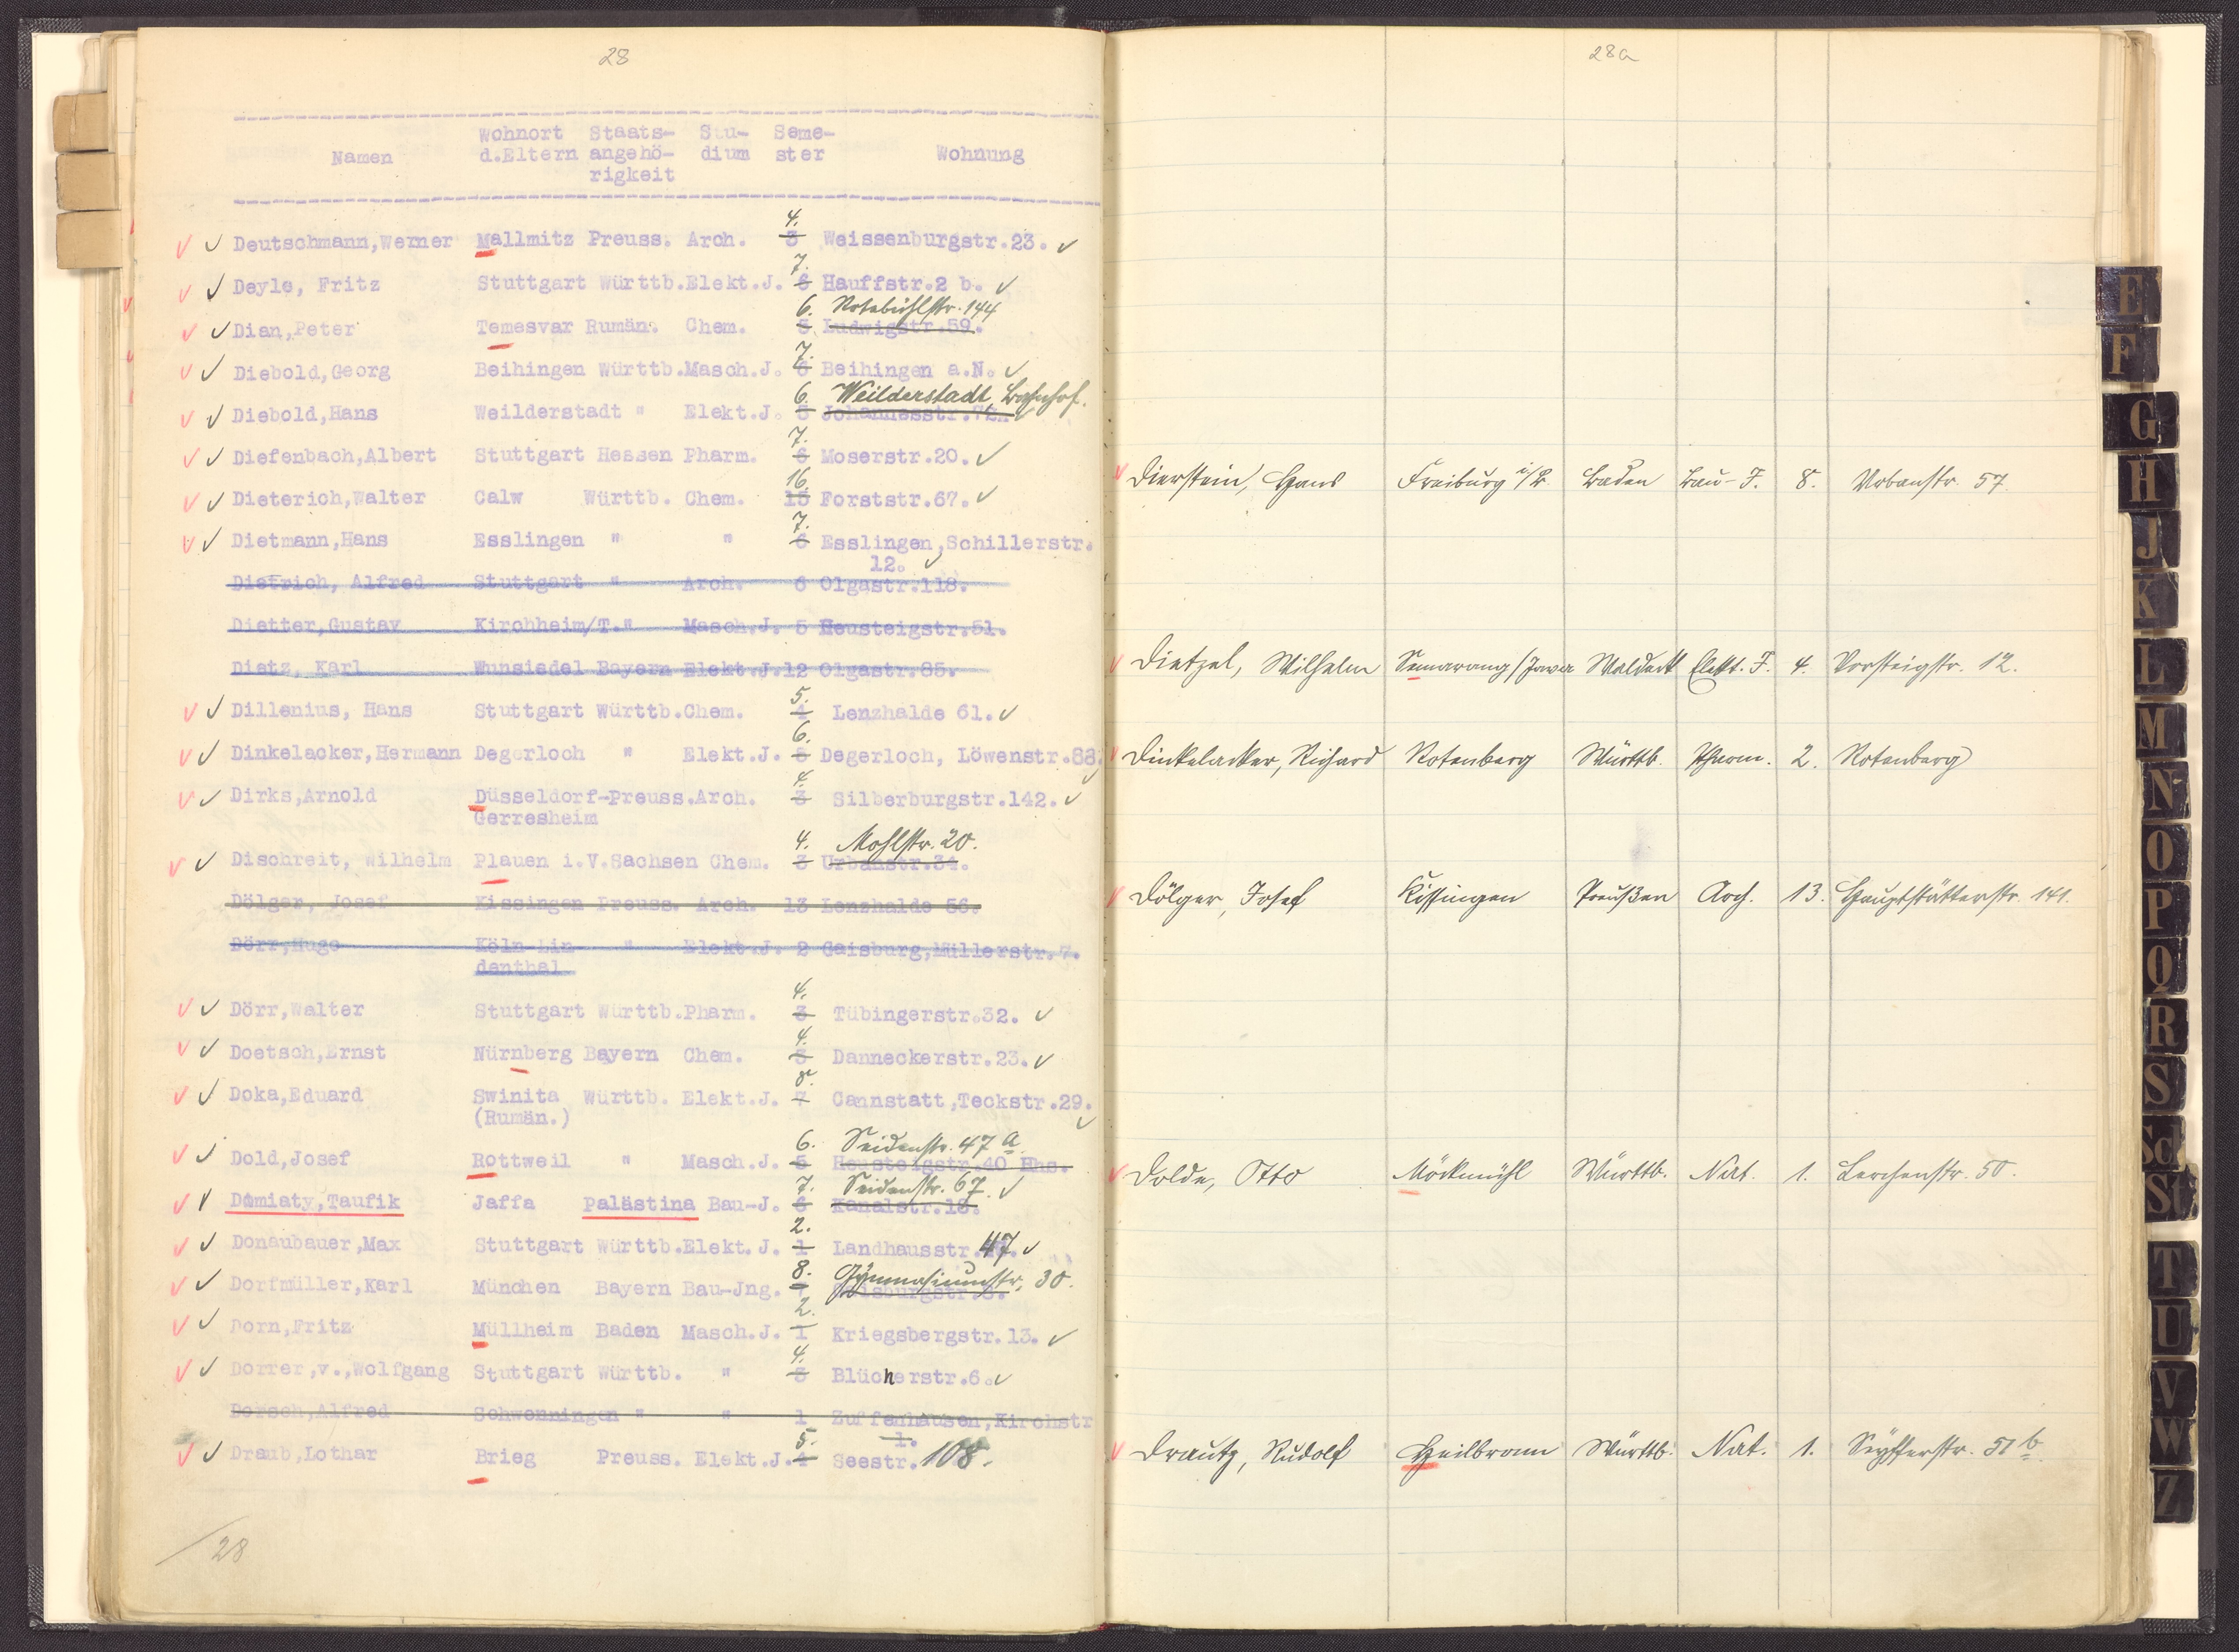 28
Namen Wohnort d.Eltern Staats-angehö-rigkeit Stu-dium Seme-ster Wohnung
Deutschmann,Werner Mallmitz Preuss. Arch. 3 4. Weissenburgstr.23.
Deyle, Fritz Stuttgart Württb. Elekt.J. 6 7. Hauffstr.2 b.
Dian,Peter Temesvar Rumän. Chem. 5 6. Ludwigstr.59. Rotebühlstr. 144
Diebold,Georg Beihingen Württb. Masch.J. 6 7. Beihingen a.N.
Diebold,Hans Weilderstadt " Elekt.J. 5 6. Johannesstr. Weilderstadt, Bahnhof.
Diefenbach,Albert Stuttgart Hessen Pharm. 6 7. Moserstr.20.
Dieterich,Walter Calw Württb. Chem. 15 16. Forststr.67.
Dietmann,Hans Esslingen " " 6 7. Esslingen,Schillerstr.
12.
Dietrich, Alfred Stuttgart " Arch. 6 Olgastr.118.
Dietter,Gustav Kirchheim/T. " Masch.J. 5 Heusteigstr.51.
Dietz, Karl Wunsiedel Bayern Elekt.J. 12 Olgastr.85.
Dillenius, Hans Stuttgart Württb. Chem. 4 5. Lenzhalde 61.
Dinkelacker,Hermann Degerloch " Elekt.J. 6. Degerloch, Löwenstr.88.
Dirks,Arnold Düsseldorf- Preuss. Arch. 3 4. Silberburgstr.142.
Gerresheim
Dischreit, Wilhelm Plauen i.V. Sachsen Chem. 3 4. Urbanstr.34. Mohlstr. 20.
Dölger, Josef Kissingen Preuss. Arch. 13 Lenzhalde 56.
Dörr,Hugo Köln-Lin- " Elekt.J. 2 Gaisburg,Müllerstr.7.
denthal
Dörr,Walter Stuttgart Württb. Pharm. 3 4. Tübingerstr.32.
Doetsch,Ernst Nürnberg Bayern Chem. 3 4. Danneckerstr.23.
Doka,Eduard Swinita Württb. Elekt.J. 7 8. Cannstatt,Teckstr.29.
(Rumän.)
Dold,Josef Rottweil " Masch.J. 5 6. Heusteigstr.40 Hhs. Seidenstr. 47 a
Domiaty,Taufik Jaffa Palästina Bau-J. 6 7. Kanalstr.18. Seidenstr. 67.
Donaubauer,Max Stuttgart Württb. Elekt.J. 1 2. Landhausstr. 47.
Dorfmüller,Karl München Bayern Bau-Jng. 7 8. Gymnasiumstr. 30.
Dorn,Fritz Müllheim Baden Masch.J. 1 2. Kriegsbergstr.13.
Dorrer,v.,Wolfgang Stuttgart Württb. " 3 4. Blücherstr.6.
Dorsch,Alfred Schwenningen " " 1 Zuffenhausen,Kirchstr
1.
Draub,Lothar Brieg Preuss. Elekt.J. 4 5. Seestr. 108.
28
28a
Dierstein, Hans Freiburg i/B Baden Bau-J. 8. Urbanstr. 57.
Dietzel, Wilhelm Semarang/Java Waldeck Elekt. J. 4. Vorsteigstr. 12.
Dinkelacker, Richard Rotenberg Württb. Pharm. 2. Rotenberg
Dölger, Josef Kissingen Preußen Arch. 13. Hauptstätterstr. 141.
Dolde, Otto Möckmühl Württb. Nat. 1. Lerchenstr. 50.
Drautz, Rudolf Heilbronn Württb. Nat. 1. Seyfferstr. 51 b
E
F
G
H
J
K
L
M
N
O
P
Q
R
S
Sch
St
T
U
V
W
Z